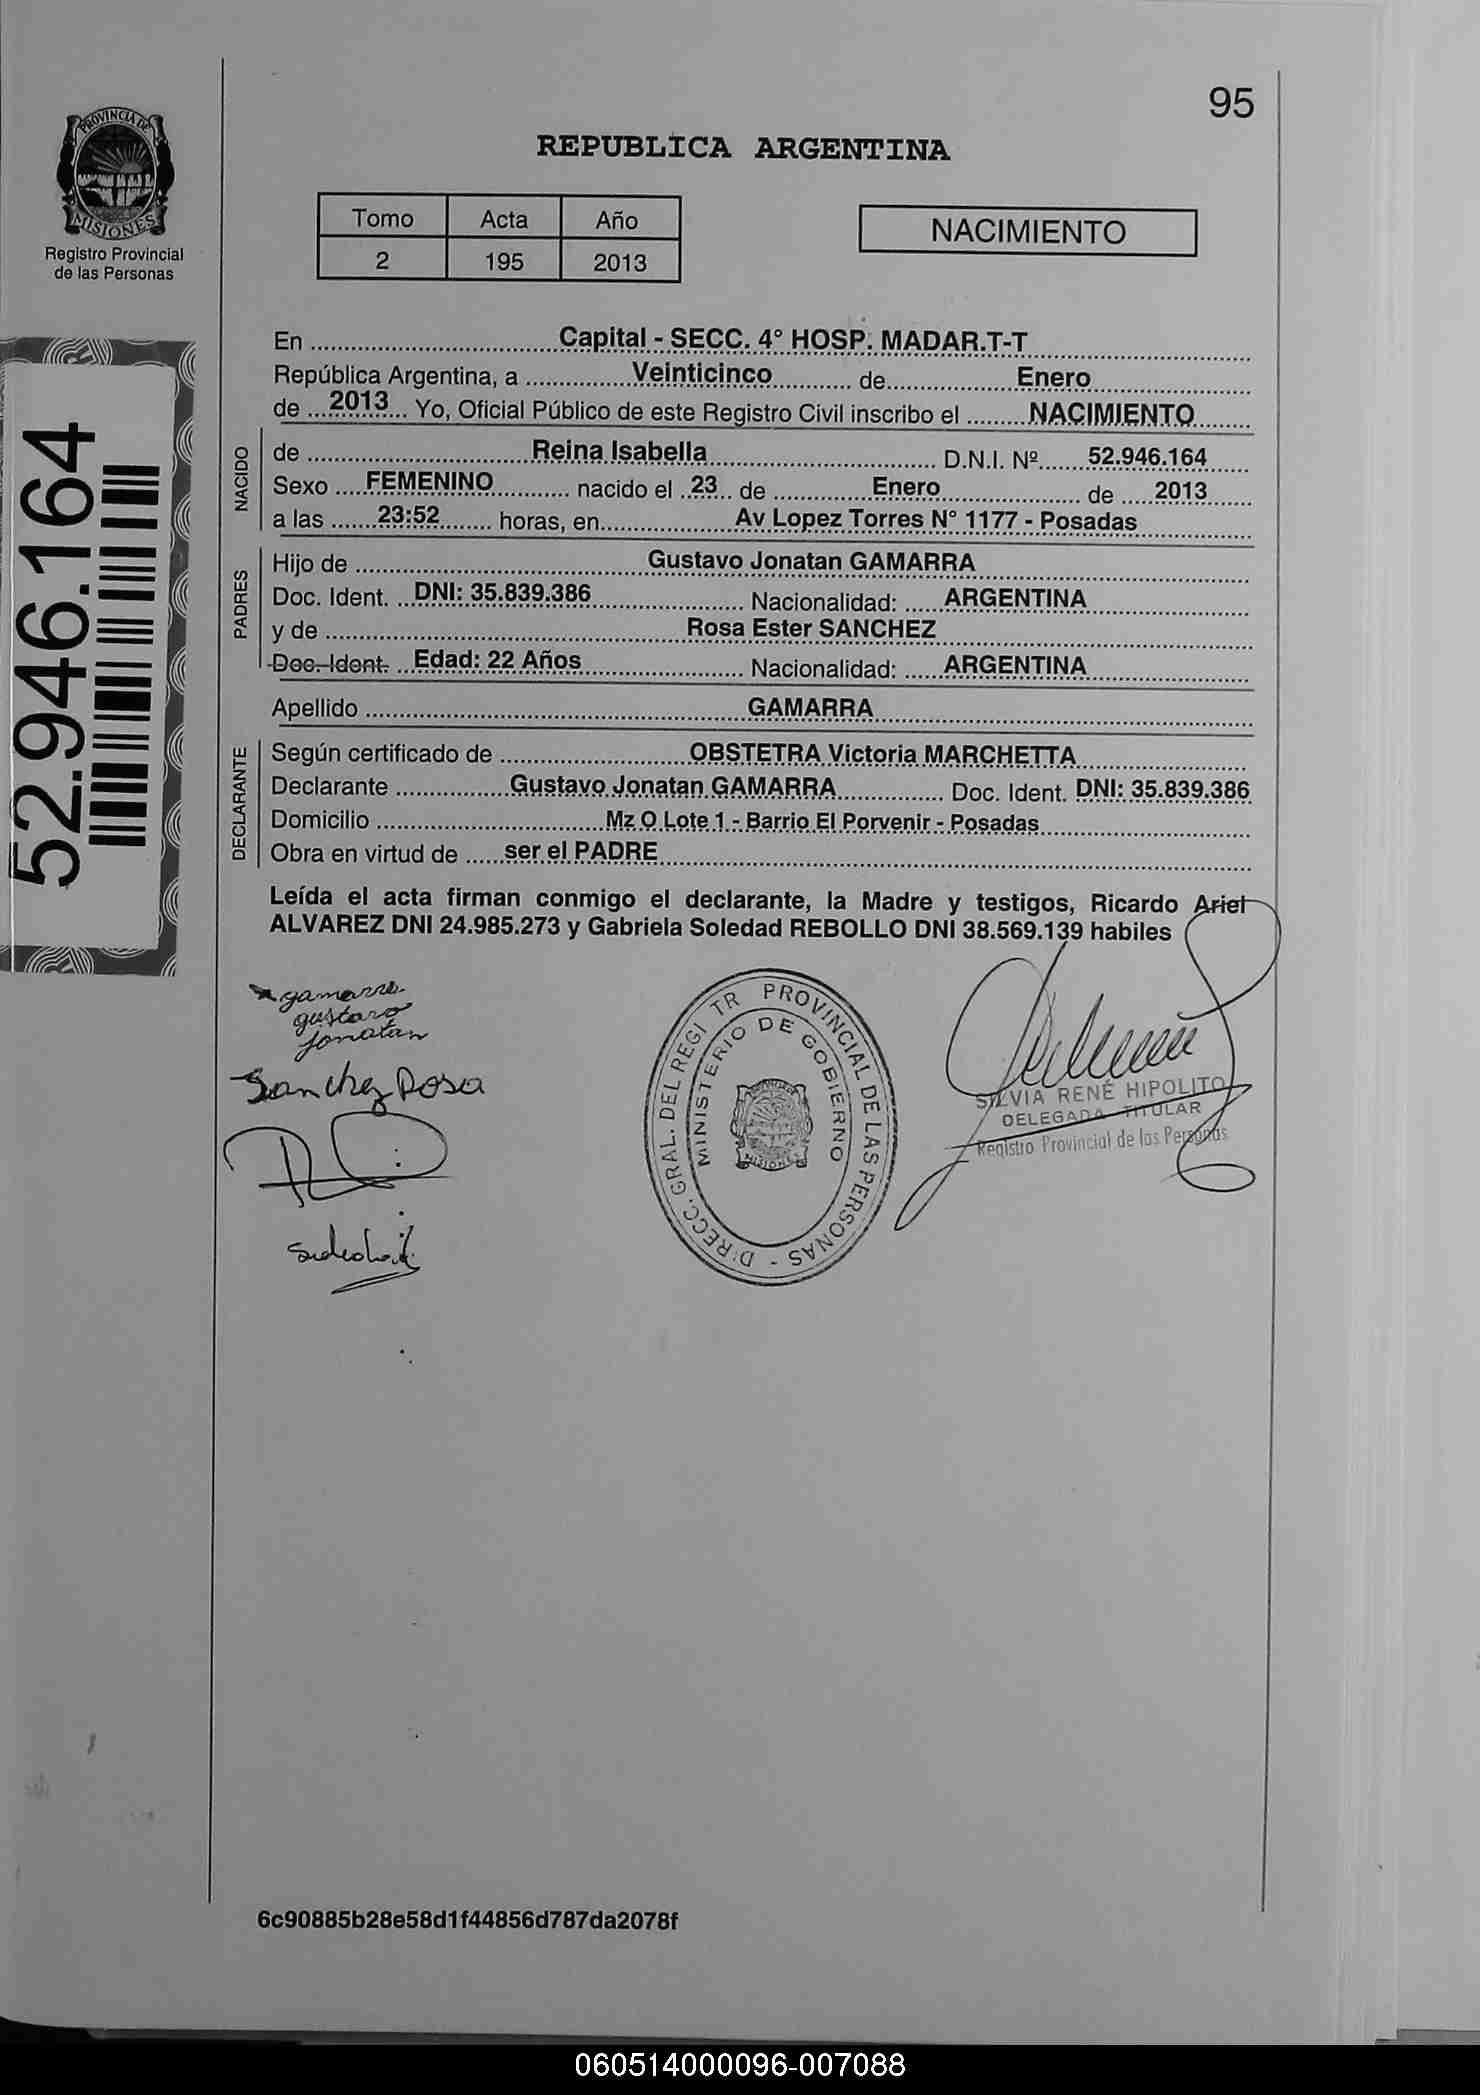 95
PROVINCIA DE
MISIONES
Registro Provincial
de las Personas
REPUBLICA ARGENTINA
Tomo Acta Año
2 195 2013
NACIMIENTO
52.946.164
En Capital - SECC. 4° HOSP. MADAR.T-T
República Argentina, a Veinticinco de Enero
de 2013 Yo, Oficial Público de este Registro Civil inscribo el NACIMIENTO
NACIDO
de Reina Isabella D.N.I. Nº 52.946.164
Sexo FEMENINO nacido el 23 de Enero de 2013
a las 23:52 horas, en Av Lopez Torres N° 1177 - Posadas
PADRES
Hijo de Gustavo Jonatan GAMARRA
Doc. Ident. DNI: 35.839.386 Nacionalidad: ARGENTINA
y de Rosa Ester SANCHEZ
Doc. Ident. Edad: 22 Años Nacionalidad: ARGENTINA
Apellido GAMARRA
DECLARANTE
Según certificado de OBSTETRA Victoria MARCHETTA
Declarante Gustavo Jonatan GAMARRA Doc. Ident. DNI: 35.839.386
Domicilio Mz O Lote 1 - Barrio El Porvenir - Posadas
Obra en virtud de ser el PADRE
Leída el acta firman conmigo el declarante, la Madre y testigos, Ricardo Ariel
ALVAREZ DNI 24.985.273 y Gabriela Soledad REBOLLO DNI 38.569.139 habiles
gamarra
gustavo
jonatan
Sanchez Rosa
DIRECC. GRAL. DEL REGISTR PROVINCIAL DE LAS PERSONAS -
MINISTERIO DE GOBIERNO
MISIONES
SILVIA RENÉ HIPOLITO
DELEGADA TITULAR
Registro Provincial de las Personas
6c90885b28e58d1f44856d787da2078f
060514000096-007088